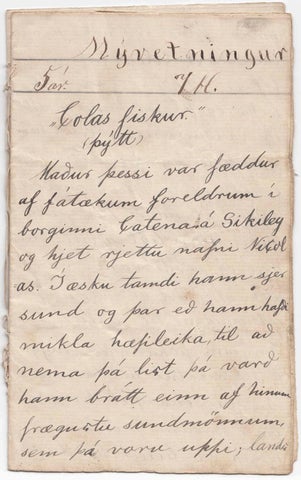 Mývetningur
5 ár. 7 H.
"Colas fiskur"
(þýtt)
Maður þessi var fæddur
af fátækum foreldrum í
borginni Catena á Sikiley
og hjet rjettu nafni Nicol
as. Í æsku tamdi hann sjer
sund og þar eð hann hafði
mikla hæfileika, til að
nema þá list þá varð
hann brátt einn af hinum
frægustu sundmönnum,
sem þá voru uppi; lands